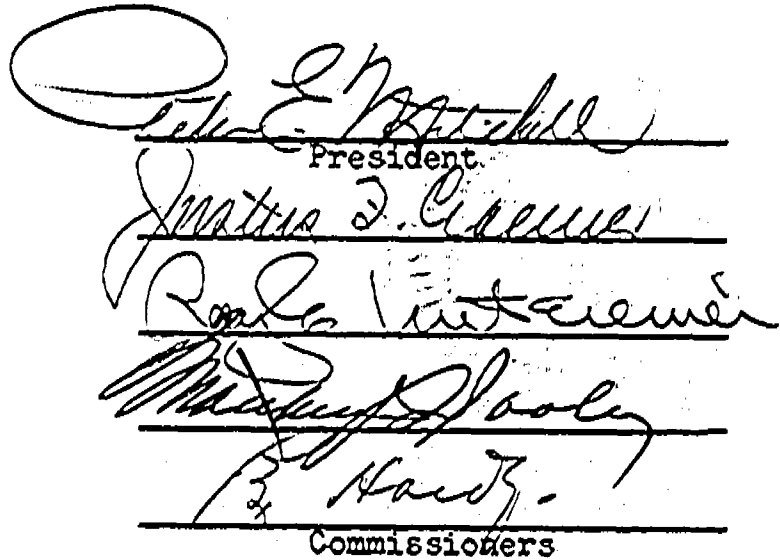 Peter E. Mitchell
President
Justus F. Craemer
Untereiner
Hardy.
Commissioners